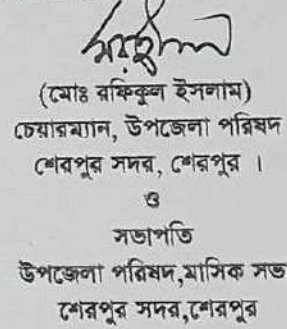 (মোঃ রফিকুল ইসলাম)
চেয়ারম্যান, উপজেলা পরিষদ
শেরপুর সদর, শেরপুর ।
ও
সভাপতি
উপজেলা পরিষদ,মাসিক সভ
শেরপুর সদর,শেরপুর